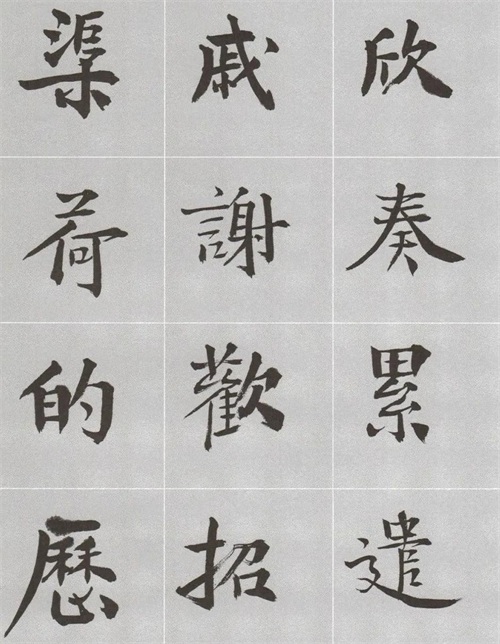 欣奏累遣
戚謝歡招
渠荷的歷